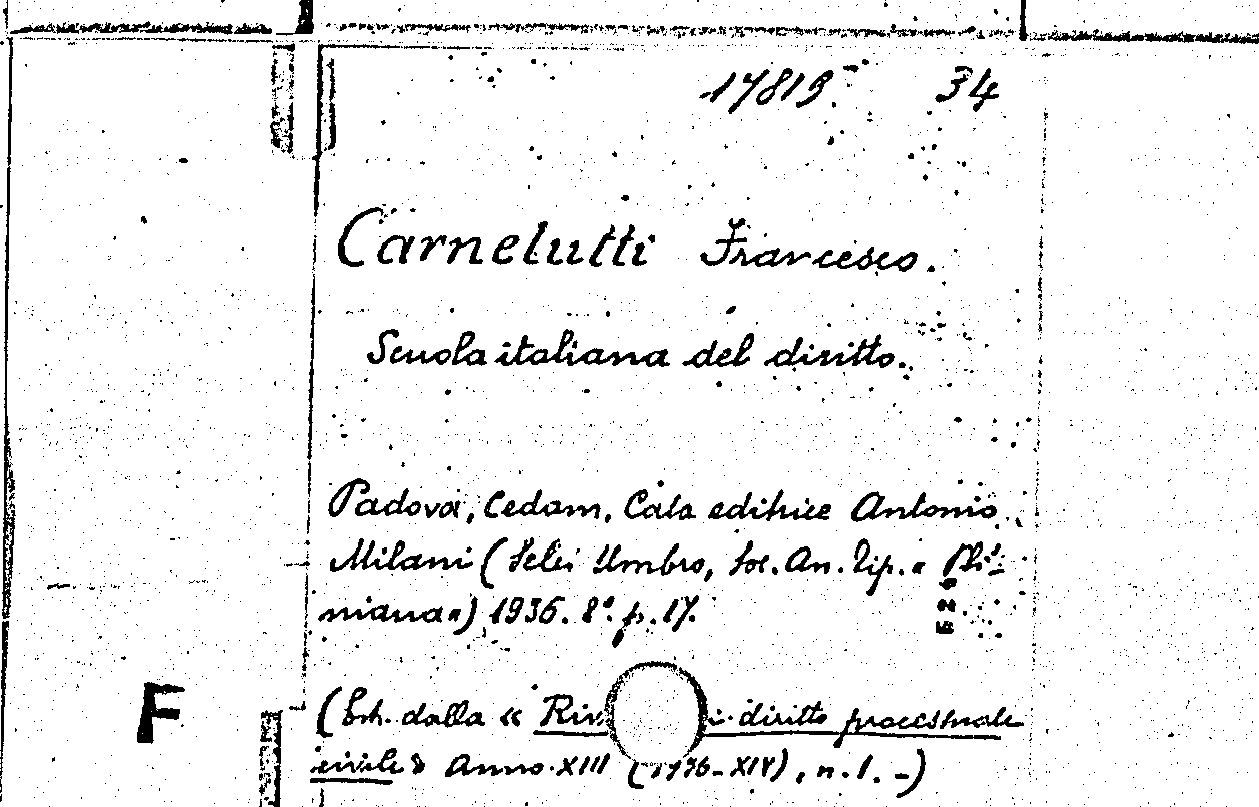 17819 34
Carnelutti Francesco.
Scuola italiana del diritto.
Padova, Cedam, Casa editrice Antonio
Milani (Selci Umbro, Soc. An. Tip. « Pli-
niana») 1936. 8°. p. 17.
F
(Estr. dalla « Riv di diritto processuale
civile » Anno XIII (1936-XIV), n. 1. -)